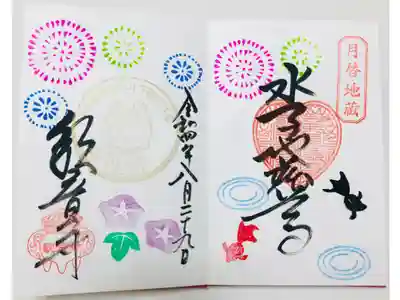 月啓地蔵
水子地蔵尊
令和四年八月二十九日
観音寺